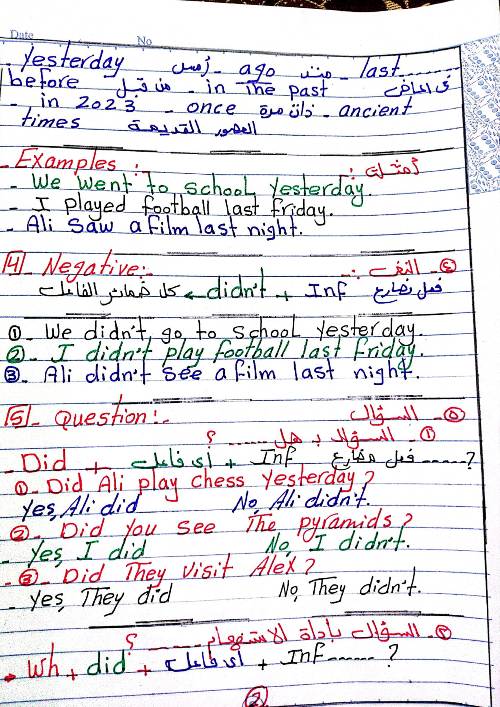 Date No
- yesterday أمس - ago منذ - last ......
before من قبل - in the past فى الماضى
- in 2023 - once ذات مرة - ancient
times العصور القديمة
- Examples : أمثلة :
- We went to school yesterday.
- I played football last friday.
- Ali saw a film last night.
4 - Negative:- ٤- النفى :-
كل ضمائر الفاعل ← didn't + Inf فعل مضارع
① - We didn't go to school yesterday.
② - I didn't play football last friday.
③ - Ali didn't see a film last night.
5 - Question:- ٥- السؤال
١- السؤال بـ هل ...... ؟
- Did + أى فاعل + Inf فعل مضارع ......?
① - Did Ali play chess yesterday?
yes, Ali did No, Ali didn't.
② - Did you see The pyramids?
- yes, I did No, I didn't.
- ③ - Did They visit Alex?
- yes, They did No, They didn't.
٢- السؤال بأداة الاستفهام ...... ؟
• Wh + did + أى فاعل + Inf ...... ?
2